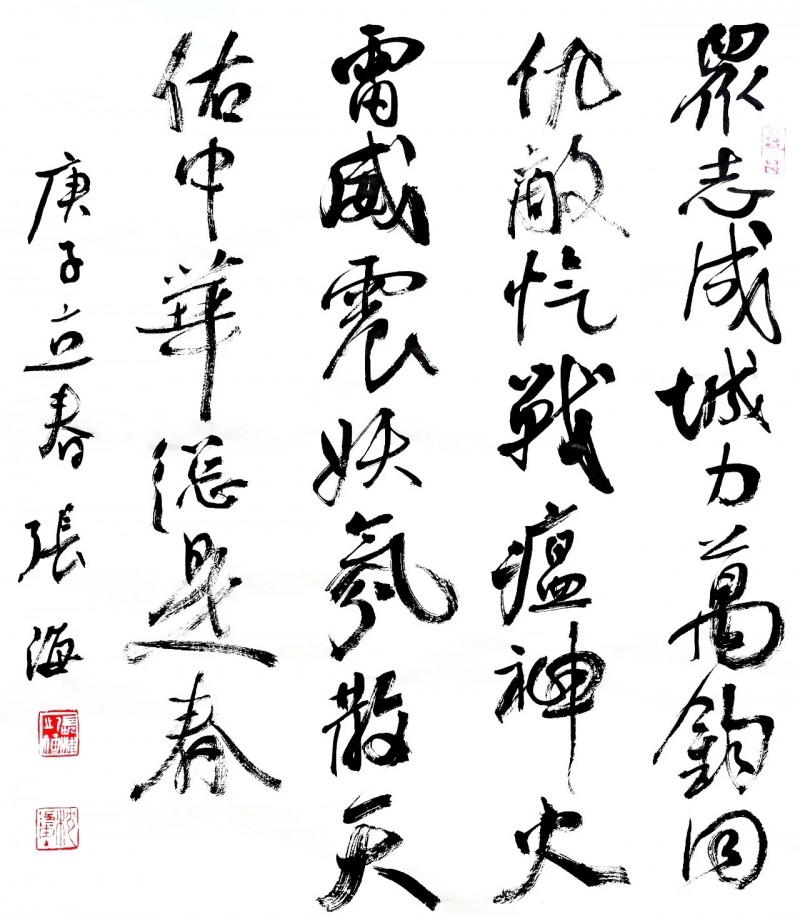 眾志成城力萬鈞同
仇敵忾戰瘟神火
雷威震妖氛散天
佑中華總是春
庚子立春張海